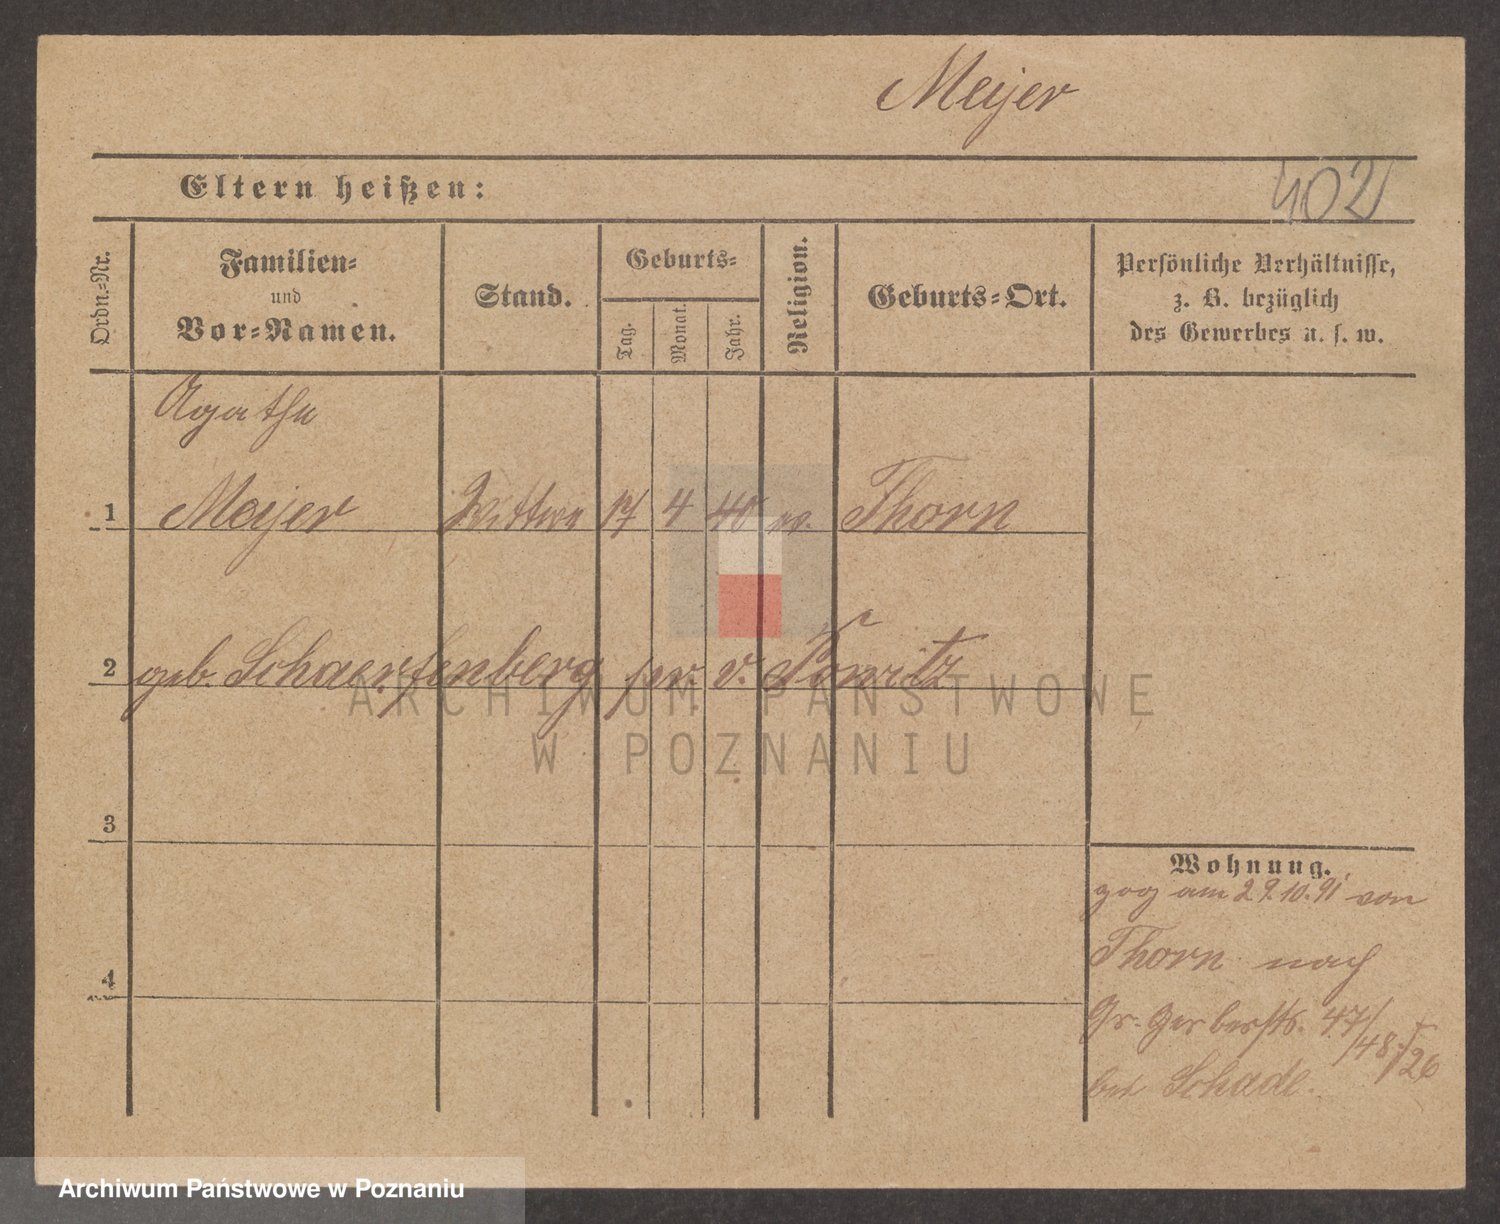 Meijer
Eltern heißen:
402
Ordn.-Nr.
Familien-
und
Vor-Namen.
Stand.
Geburts-
Tag.
Monat.
Jahr.
Religion.
Geburts-Ort.
Persönliche Verhältnisse,
z. B. bezüglich
des Gewerbes u. s. w.
Agathe
1 Meijer Wittwe 17 4 40 ev. Thorn
2 geb. Schaerffenberg pr. v.
ARCHIWUM PAŃSTWOWE
W POZNANIU
3
Wohnung.
zog am 29.10.91 von
4
Thorn nach
Gr. Gerberstr. 47/
/48
26
bei Schade.
Archiwum Państwowe w Poznaniu